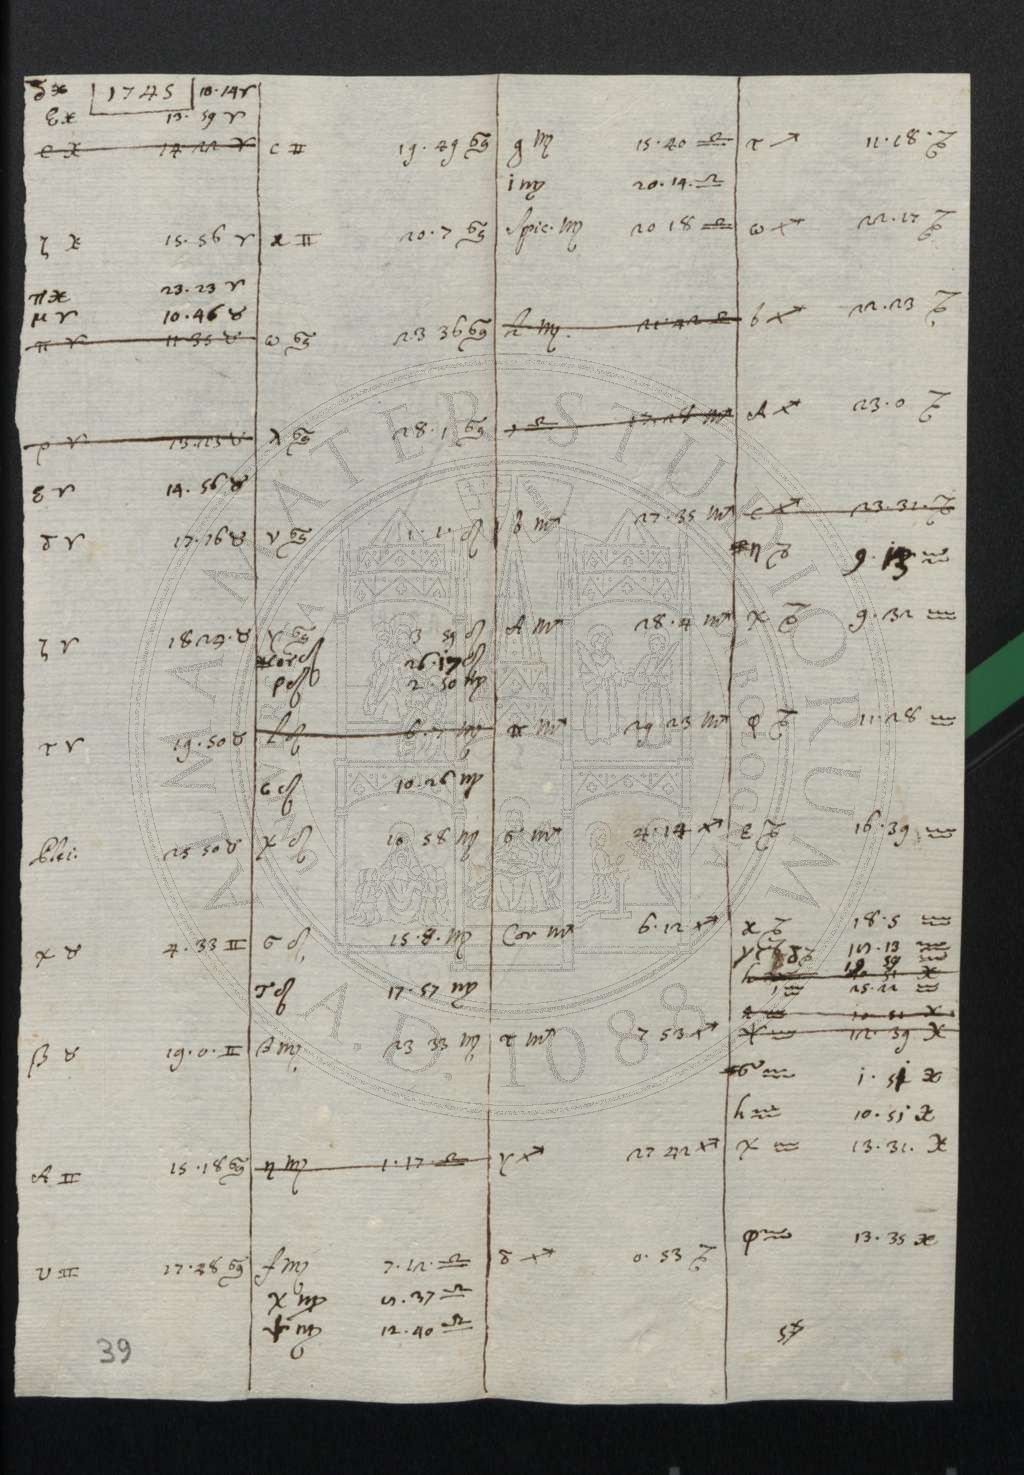 δ ♓ 1745 10.14 ♈
ε ♓ 13.59 ♈
e ♓ 14.22 ♈
ζ ♓ 15.56 ♈
π ♓ 23.23 ♈
μ ♈ 10.46 ♉
π ♈ 11.35 ♉
ρ ♈
ε ♈ 14.56 ♉
δ ♈ 17.26 ♉
ζ ♈ 18.24 ♉
τ ♈ 19.50 ♉
Plei. 25 50 ♉
α ♉ 4.33 ♊
β ♉ 19.0. ♊
A ♊ 15.18 ♋
υ ♊ 17.28 ♋
39
c ♊ 19.49 ♋
κ ♊ 20.7 ♋
ω ♋ 23 36 ♋
λ ♋ 28.1 ♋
ν ♋ 1.1. ♌
γ ♋ 3 59 ♌
Cor ♌ 26.17 ♌
ρ ♌ 2.50 ♍
l ♌ 6.7 ♍
c ♌ 10.26 ♍
χ ♌ 10 58 ♍
σ ♌ 15.8. ♍
τ ♌ 17.57 ♍
β ♍ 23 33 ♍
η ♍ 1.17. ♎
f ♍ 7.12. ♎
χ ♍ 5.37 ♎
ψ ♍ 12.40 ♎
g ♍ 15.40 ♎
i ♍ 20.14. ♎
Spic. ♍ 20 18 ♎
h ♍. 21.42 ♎
♎ 17.28 ♏
β ♏ 27.35 ♏
A ♏ 28.4 ♏
π ♏ 29 23 ♏
σ ♏ 4.14 ♐
Cor ♏ 6.12 ♐
τ ♏ 7 53 ♐
γ ♐ 27 42 ♐
δ ♐ 0.53 ♑
τ ♐ 11.18. ♑
ω ♐ 22.17 ♑
b ♐ 22.23 ♑
A ♐ 23.0 ♑
c ♐ 23.31. ♑
η ♑ 9.13 ♒
χ ♑ 9.32 ♒
φ ♑ 11.28 ♒
ε ♑ 16.39 ♒
κ ♑ 18.5 ♒
δ ♑
ι ♒ 25.22 ♒
♒ 12.39 ♓
σ ♒ 1.51 ♓
h ♒ 10.51 ♓
χ ♒ 13.31. ♓
φ ♒ 13.35 ♓
ALMA MATER STUDIORUM
A.D. 1088